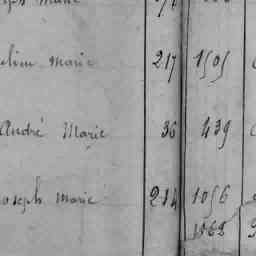 Marie
Marie 217 1505
André Marie 36 439
Joseph Marie 214 1056
1062